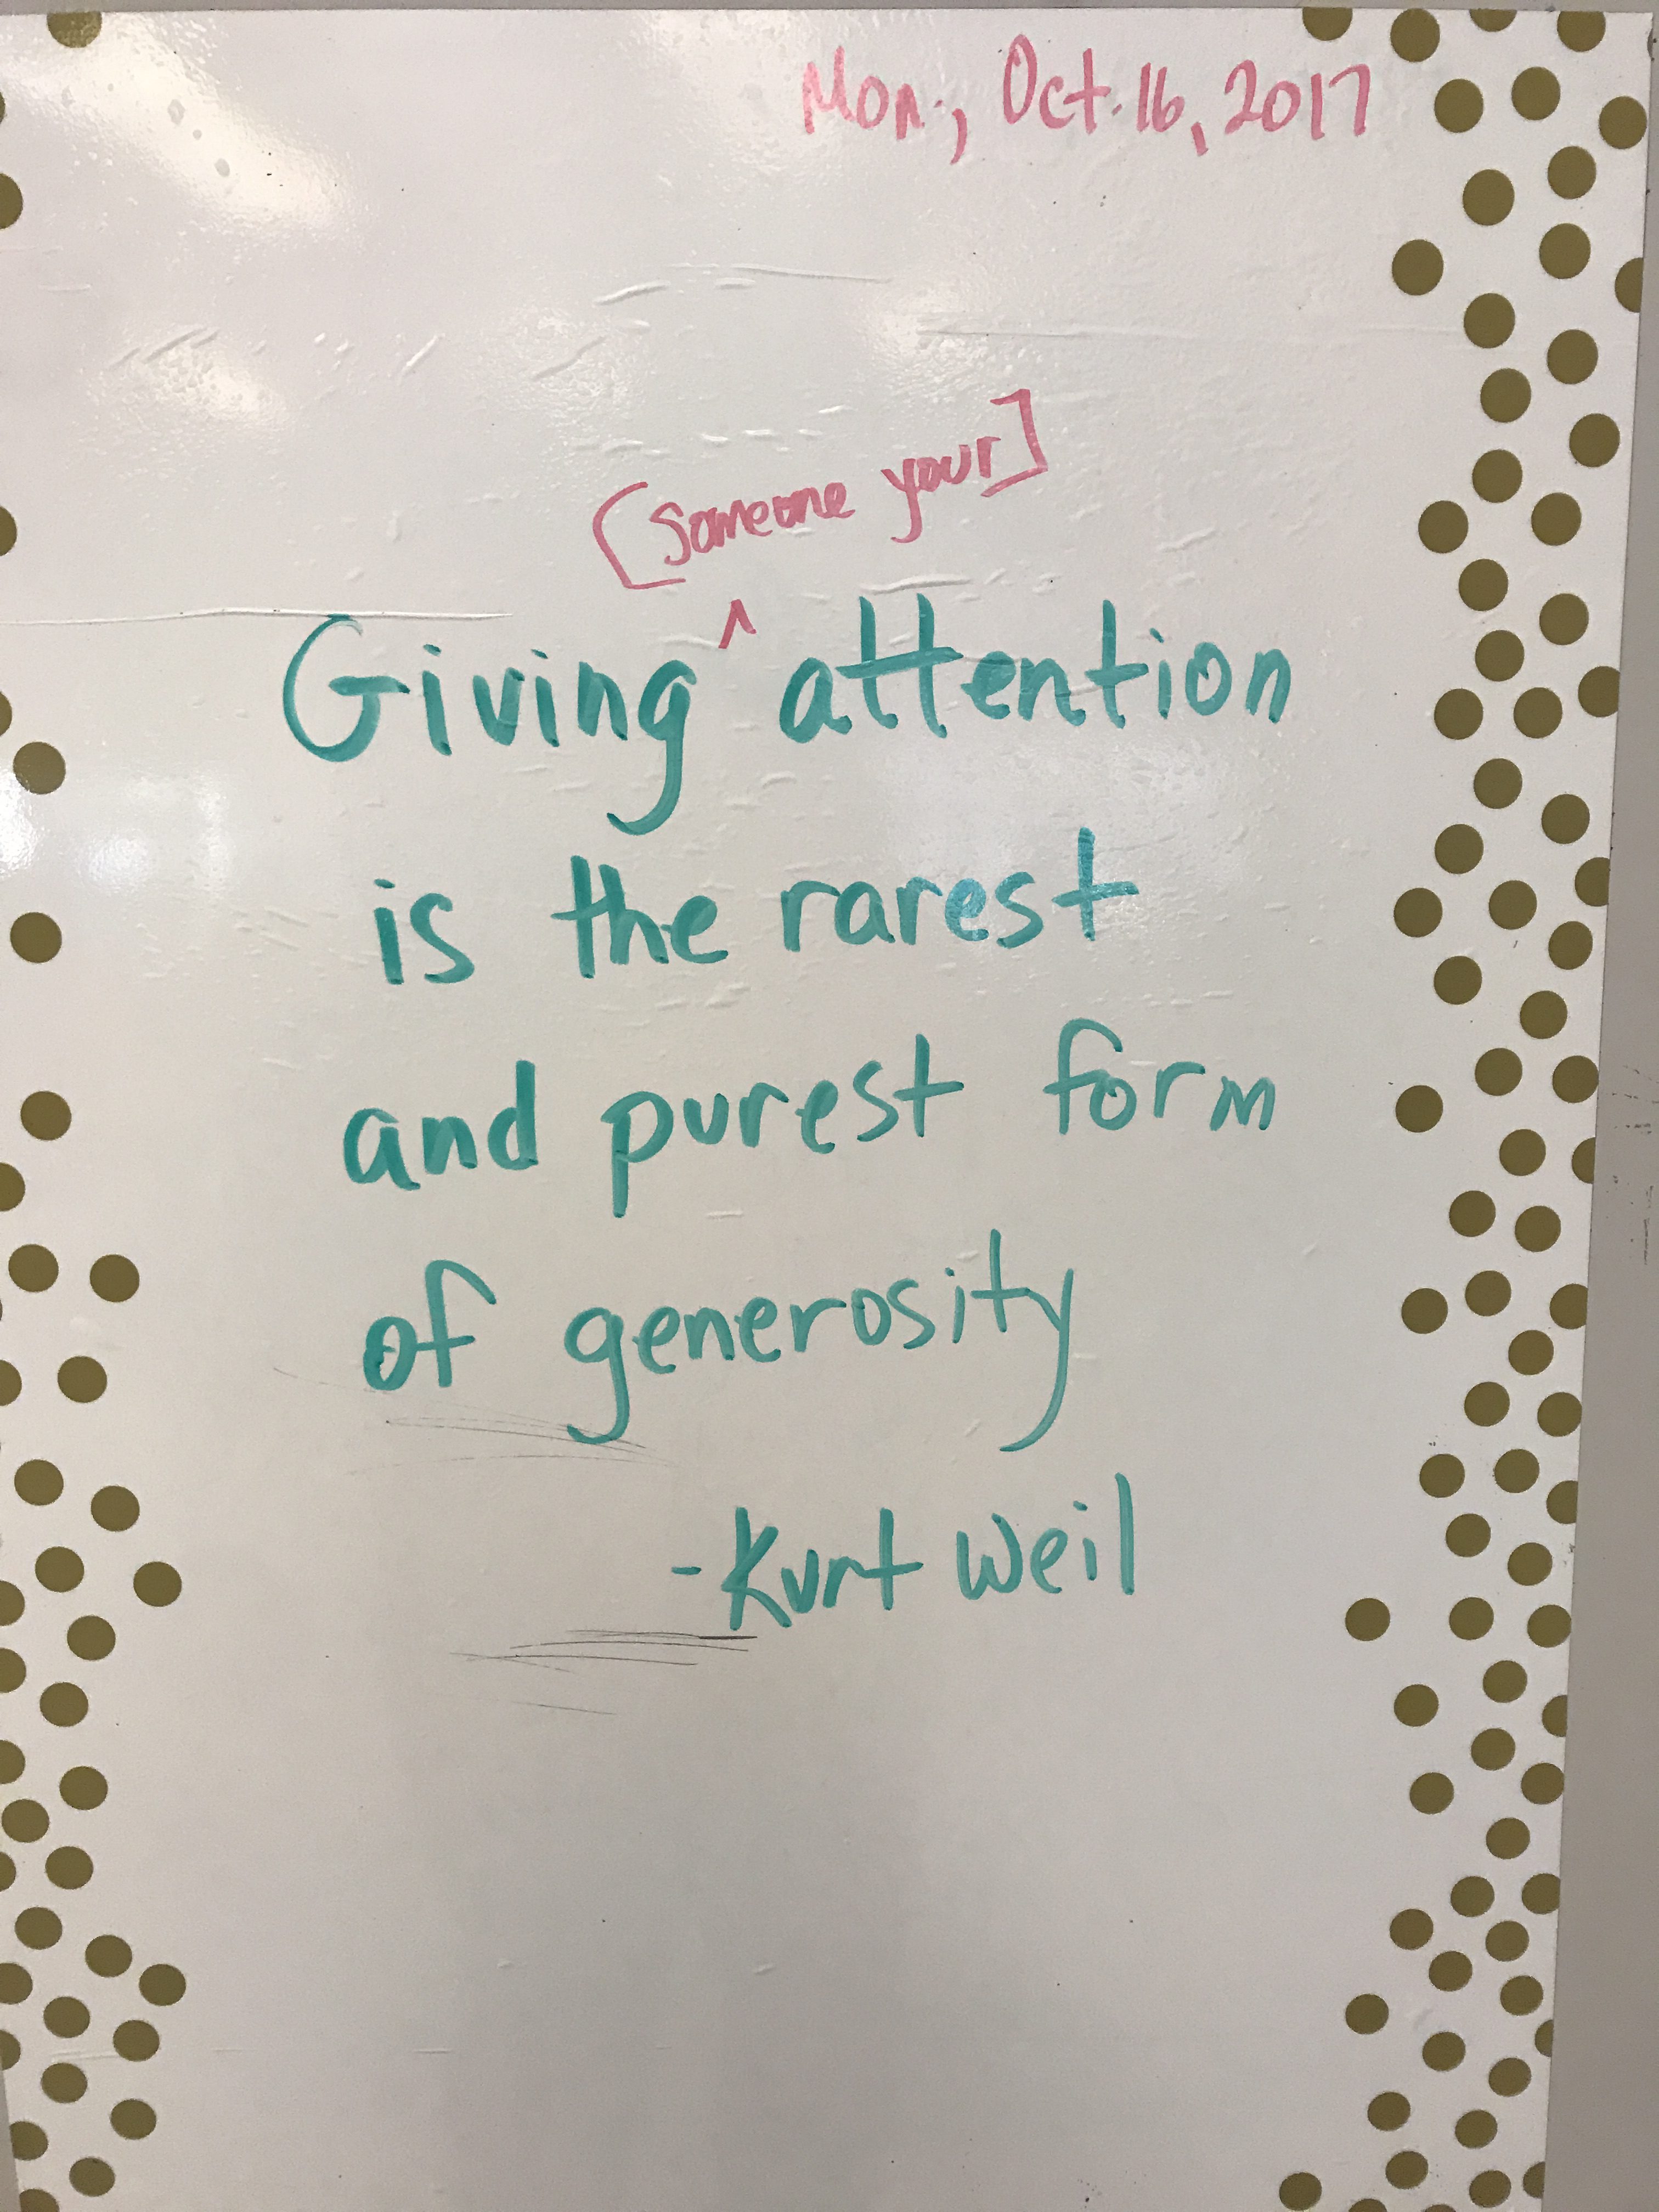 Mon., Oct. 16, 2017
[someone your]
^
Giving attention
is the rarest
and purest form
of generosity
-Kurt Weil